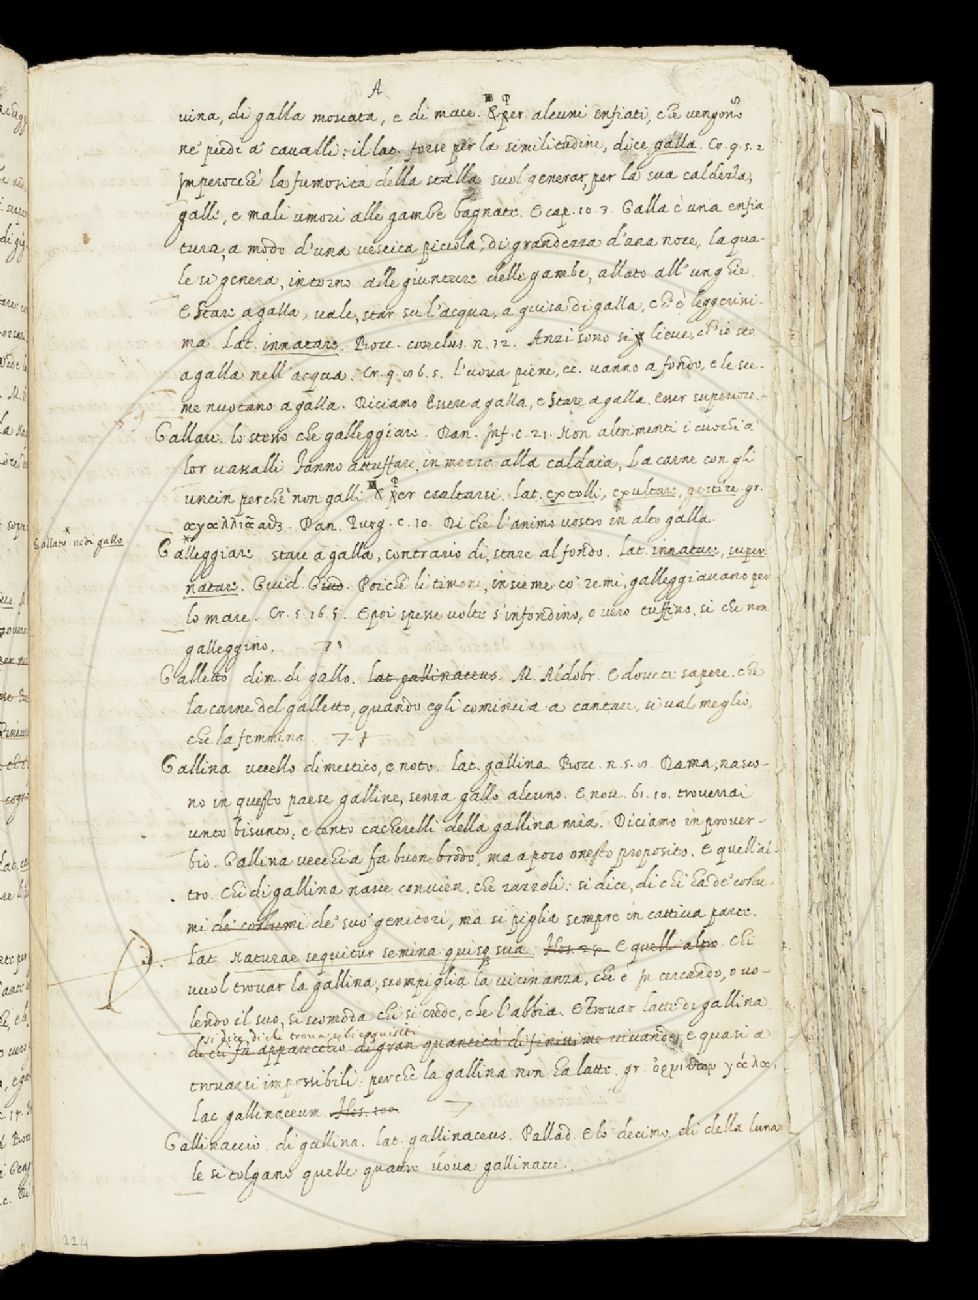 A
uina, di galla moscata, e di mace. E per alcuni enfiati, che vengono
ne' piedi a' caualli: il lat. forse per la similitudine, dice galla. Cr. 9. 5. 2
Imperocchè la fumosita della stalla suol generar, per la sua caldezza,
galle, e mali umori alle gambe bagnate. E cap. 10. 3. Galla è una enfia
tura, a modo d'una uescica piccola, di grandezza d'una noce, la qua-
le si genera, intorno alle giunture delle gambe, allato all'unghie.
E Stare a galla, uale, star su l'acqua, a guisa di galla, ch'è leggerissi-
ma. Lat. innatare. Bocc. conclus. n. 12. Anzi sono sì lieue, ch'io sto
a galla nell'acqua. Cr. 9. 86. 5. l'uoua piene, ec. uanno a fondo, e le sce-
me nuotano a galla. Diciamo Essere a galla, e Stare a galla. Esser superiore.
Gallare. lo stesso che galleggiare. Dan. Inf. c. 21. Non altrimenti i cuochi a'
lor uassalli Fanno attuffare, in mezzo alla caldaia, La carne con gli
uncin perchè non galli. E per esaltarsi. Lat. extolli, exultare, gestire. gr.
ἀγαλλιᾶσθαι. Dan. Purg. c. 10. Di che l'animo uostro in alto galla.
Gallato. uedi gallo
Galleggiare. stare a galla, contrario di, stare al fondo. Lat. innatare, super
natare. Guid. G. Poichè li timoni, insieme co' remi, galleggiauano per
lo mare. Cr. 5. 16. 5. E poi spesse uolte s'infondino, o uero tuffino, sì che non
galleggino.
Galletto dim. di gallo. lat. gallinaceus. M. Aldobr. E douete sapere, che
la carne del galletto, quando egli comincia a cantare, si ual meglio,
che la femmina.
Gallina uccello dimestico, e noto. lat. gallina. Bocc. n. 5. 8. Dama, nasco-
no in questo paese galline, senza gallo alcuno. E nou. 61. 10. trouerrai
unto bisunto, e tanto cacherelli della gallina mia. Diciamo in prouer-
bio. Gallina uecchia fa buon brodo, ma a poco onesto proposito. E quell'al-
tro. Chi di gallina nasce conuien, che razzoli: si dice, di chi ha de' costu-
mi de' costumi de' suo' genitori, ma si piglia sempre in cattiua parte.
Lat. Naturae sequitur semina quisq sua. E quell'altro. Chi
uuol trouar la gallina, scompiglia la uicinanza, chi è in cercando, o uo-
lendo il suo, si scomoda chi si crede, che l'abbia. E Trouar latte di gallina
si dice, di chi troua cibi esquisiti
di chi fa apparecchio di gran quantità di finissime uiuande, e quasi a
trouarsi impossibili: perchè la gallina non ha latte. gr. ὀρνίθων γάλα,
lac gallinaceum.
Gallinaccio. di gallina. lat. gallinaceus. Pallad. E lo decimo dì della luna
le si tolgano quelle quattro uoua gallinacce.
224